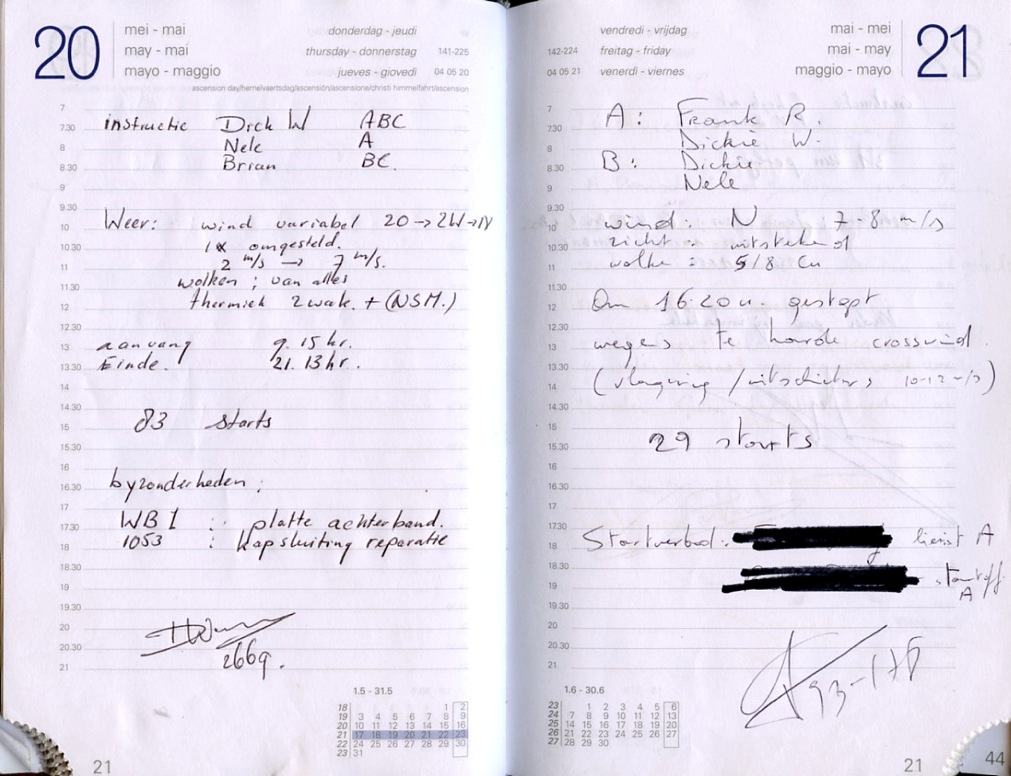 20
mei - mai
may - mai
mayo - maggio
donderdag - jeudi
thursday - donnerstag 141-225
jueves - giovedi 04 05 20
ascension day/hemelvaartsdag/ascensión/ascensione/christi himmelfahrt/ascension
7
7.30 instructie Dick W ABC
8 Nele A
8.30 Brian BC
9
9.30
10 Weer: wind variabel 20 → ZW → N
10.30 1x omgesteld.
11 2 m/s → 7 m/s.
11.30 wolken ; van alles
12 thermiek zwak. + (NSM.)
12.30
13 aanvang 9.15 hr.
13.30 Einde. 21.13 hr.
14
14.30
15 83 starts
15.30
16
16.30 byzonderheden ;
17
17.30 WB 1 : platte achterband.
18 1053 : kapsluiting reparatie
18.30
19
19.30
20
20.30 2669.
21
1.5 - 31.5
18 1 2
19 3 4 5 6 7 8 9
20 10 11 12 13 14 15 16
21 17 18 19 20 21 22 23
22 24 25 26 27 28 29 30
23 31
21
vendredi - vrijdag
142-224 freitag - friday
04 05 21 venerdi - viernes
mai - mei
mai - may
maggio - mayo
21
7 A : Frank R.
7.30
8 Dickie W.
8.30 B : Dickie
9 Nele
9.30
10 wind : N 7-8 m/s
10.30 zicht : uitstekend
11 wolke : 5/8 Cu
11.30
12 Om 16.20 u. gestopt
12.30
13 wegens te harde crosswind.
13.30
14 (vlagering / uitschieters 10-12 m/s)
14.30
15
15.30 29 starts
16
16.30
17
17.30
18 Startverbod : A
18.30
19 A
19.30
20
20.30
21
1.6 - 30.6
23 1 2 3 4 5 6
24 7 8 9 10 11 12 13
25 14 15 16 17 18 19 20
26 21 22 23 24 25 26 27
27 28 29 30
21
44